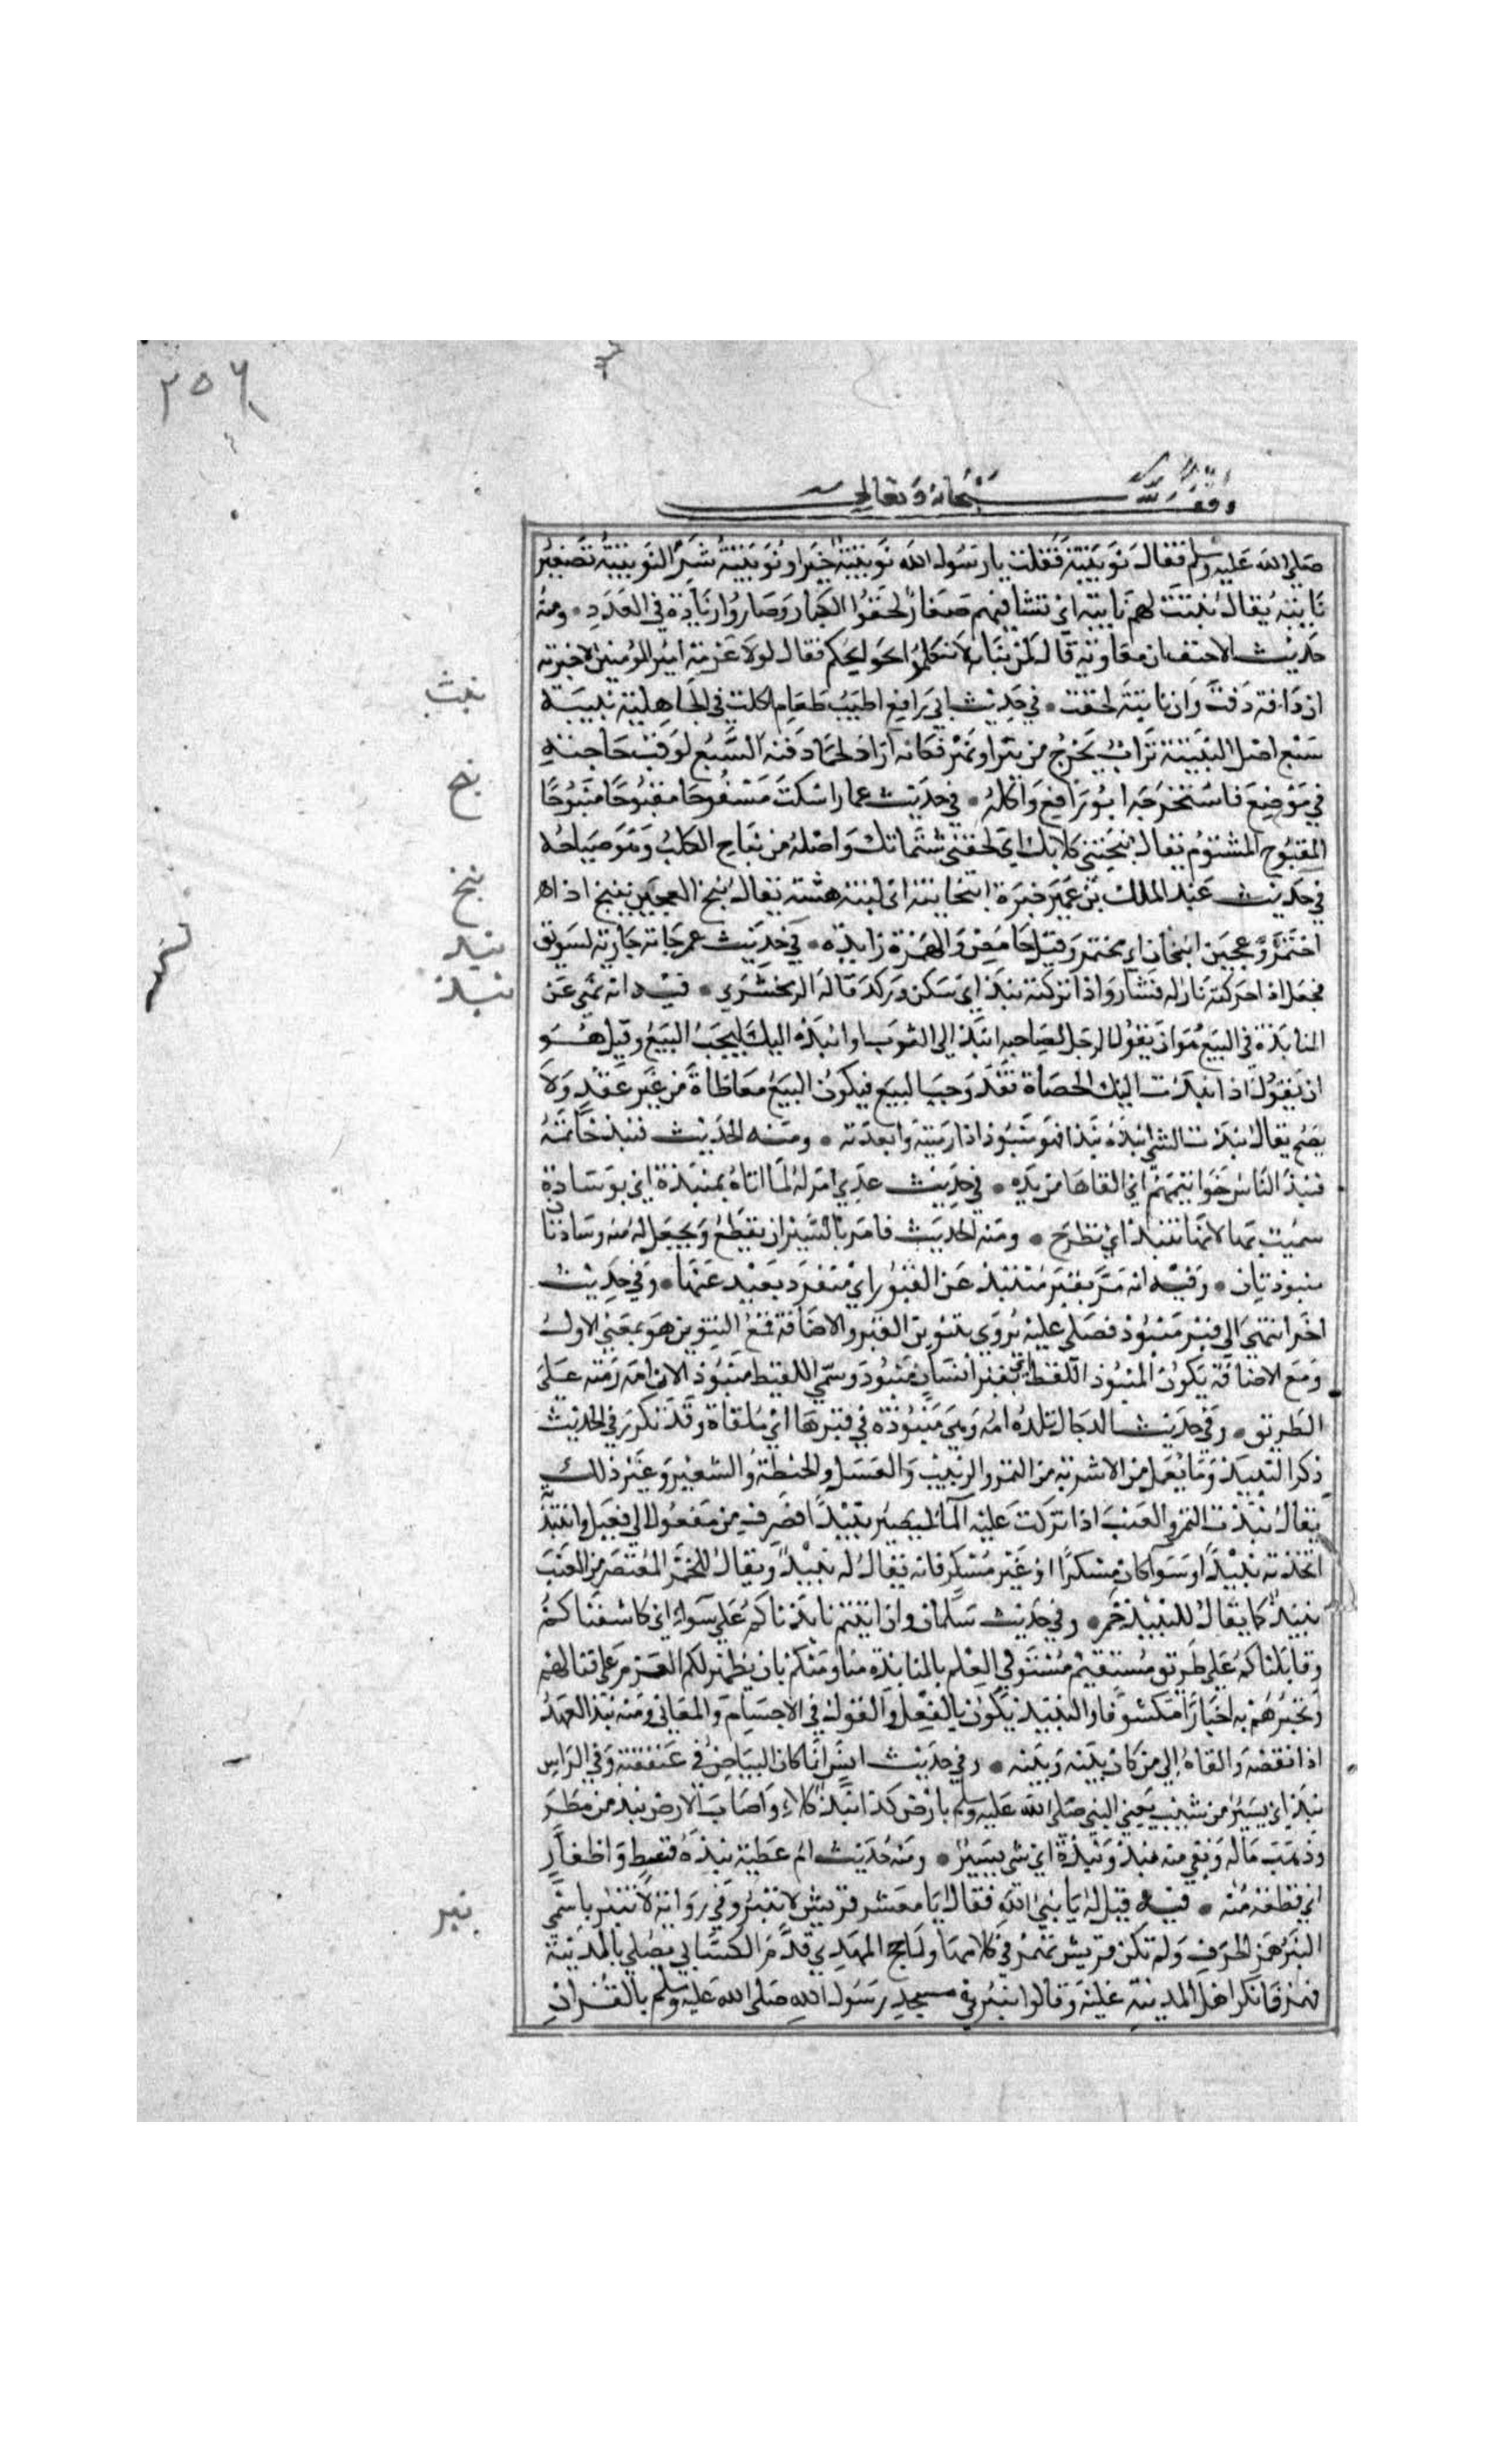 ٢٥٦
وقف لله سبحانه وتعالى
صلى الله عليه وسلم فقال نويبتة فقلت يا رسول الله نويبتة خير او نويبتة شر النويبتة تصغير
نابتة يقال نبتت لهم نابتة اي نشا فيهم صغار لحقوا الكبار وصاروا زيادة في العدد ومنه
حديث الاحنف ان معاوية قال لمن ببابه لا تتكلموا بحوايجكم فقال لولا عزمة امير المومنين لاخبرته
نبث
ان دافة دفت وان نابتة لحقت في حديث ابي رافع اطيب طعام اكلت في الجاهلية نبيثة
سبع اصل النبيثة تراب يخرج من بئر او نهر فكانه اراد لحما دفنه السبع لوقت حاجته
نبح
في موضع فاستخرجه ابو رافع واكله في حديث عمار اسكت مشقوحا مقبوحا منبوحا
المقبوح المشتوم يقال نبحتني كلابك اي لحقتني شتماتك واصله من نباح الكلب وهو صياحه
نبخ
في حديث عبد الملك بن عمير خبزة انبخانية اي لينة هشة يقال نبخ العجين ينبخ اذا
نبد
اختمر وعجين انبخان اي مختمر وقيل حامض والهمزة زايدة في حديث عمر جاته جارية بسويق
نبذ
فجعل اذا حركته ثار له قشار واذا تركته نبد اي سكن وركد قاله الزمخشري فيه انه نهى عن
المنابذة في البيع هو ان يقول الرجل لصاحبه انبذ الي الثوب او انبذه اليك ليجب البيع وقيل هو
ان يقول اذا نبذت اليك الحصاة فقد وجب البيع فيكون البيع معاطاة من غير عقد ولا
يصح يقال نبذت الشي انبذه نبذا فهو منبوذ اذا رميته وابعدته ومنه الحديث فنبذ خاتمه
فنبذ الناس خواتيمهم اي القاها من يده في حديث عدي امر له لما اتاه بمنبذة اي بوسادة
سميت بها لانها تنبذ اي تطرح ومنه الحديث فامر بالستر ان يقطع ويجعل له منه وسادتان
منبوذتان وفيه انه مر بقبر منتبذ عن القبور اي منفرد بعيد عنها وفي حديث
اخر انتهى الى قبر منبوذ فصلى عليه يروى بتنوين القبر والاضافة فمع التنوين هو بمعنى الاول
ومع الاضافة يكون المنبوذ اللقيط اي بقبر انسان منبوذ وسمي اللقيط منبوذا لان امه رمته على
الطريق وفي حديث الدجال تلده امه وهي منبوذة في قبرها اي ملقاة وقد تكرر في الحديث
ذكر النبيذ وما يعمل من الاشربة من التمر والزبيب والعسل والحنطة والشعير وغير ذلك
يقال نبذت التمر والعنب اذا تركت عليه الما ليصير نبيذا فصرف من مفعول الى فعيل وانتبذته
اتخذته نبيذا وسوا كان مسكرا او غير مسكر فانه يقال له نبيذ ويقال للخمر المعتصر من العنب
نبيذ كما يقال للنبيذ خمر وفي حديث سلمان وان ابيتم نابذناكم على سواء اي كاشفناكم
وقابلناكم على طريق مستقيم مستو في العلم بالمنابذة منا ومنكم بان يظهر لكم العزم على قتالهم
ونخبرهم به اخبارا مكشوفا والنبذ يكون بالفعل والقول في الاجسام والمعاني ومنه نبذ العهد
اذا نقضه والقاه الى من كان بينه وبينه وفي حديث انس انما كان البياض في عنفقته وفي الراس
نبذ اي يسير من شيب يعني النبي صلى الله عليه وسلم بارض كذا نبذ كلاء واصاب الارض نبذ من مطر
وذهب ماله وبقي منه نبذ ونبذة اي شي يسير ومنه حديث ام عطية نبذة قسط واظفار
نبر
اي قطعة منه فيه قيل له يا نبيء الله فقال يا معشر قريش لا ننبر وفي رواية لا تنبر باسمي
النبر همز الحرف ولم تكن قريش تهمز في كلامها ولما حج المهدي قدم الكسائي يصلي بالمدينة
فهمز فانكر اهل المدينة عليه وقالوا تنبر في مسجد رسول الله صلى الله عليه وسلم بالقران